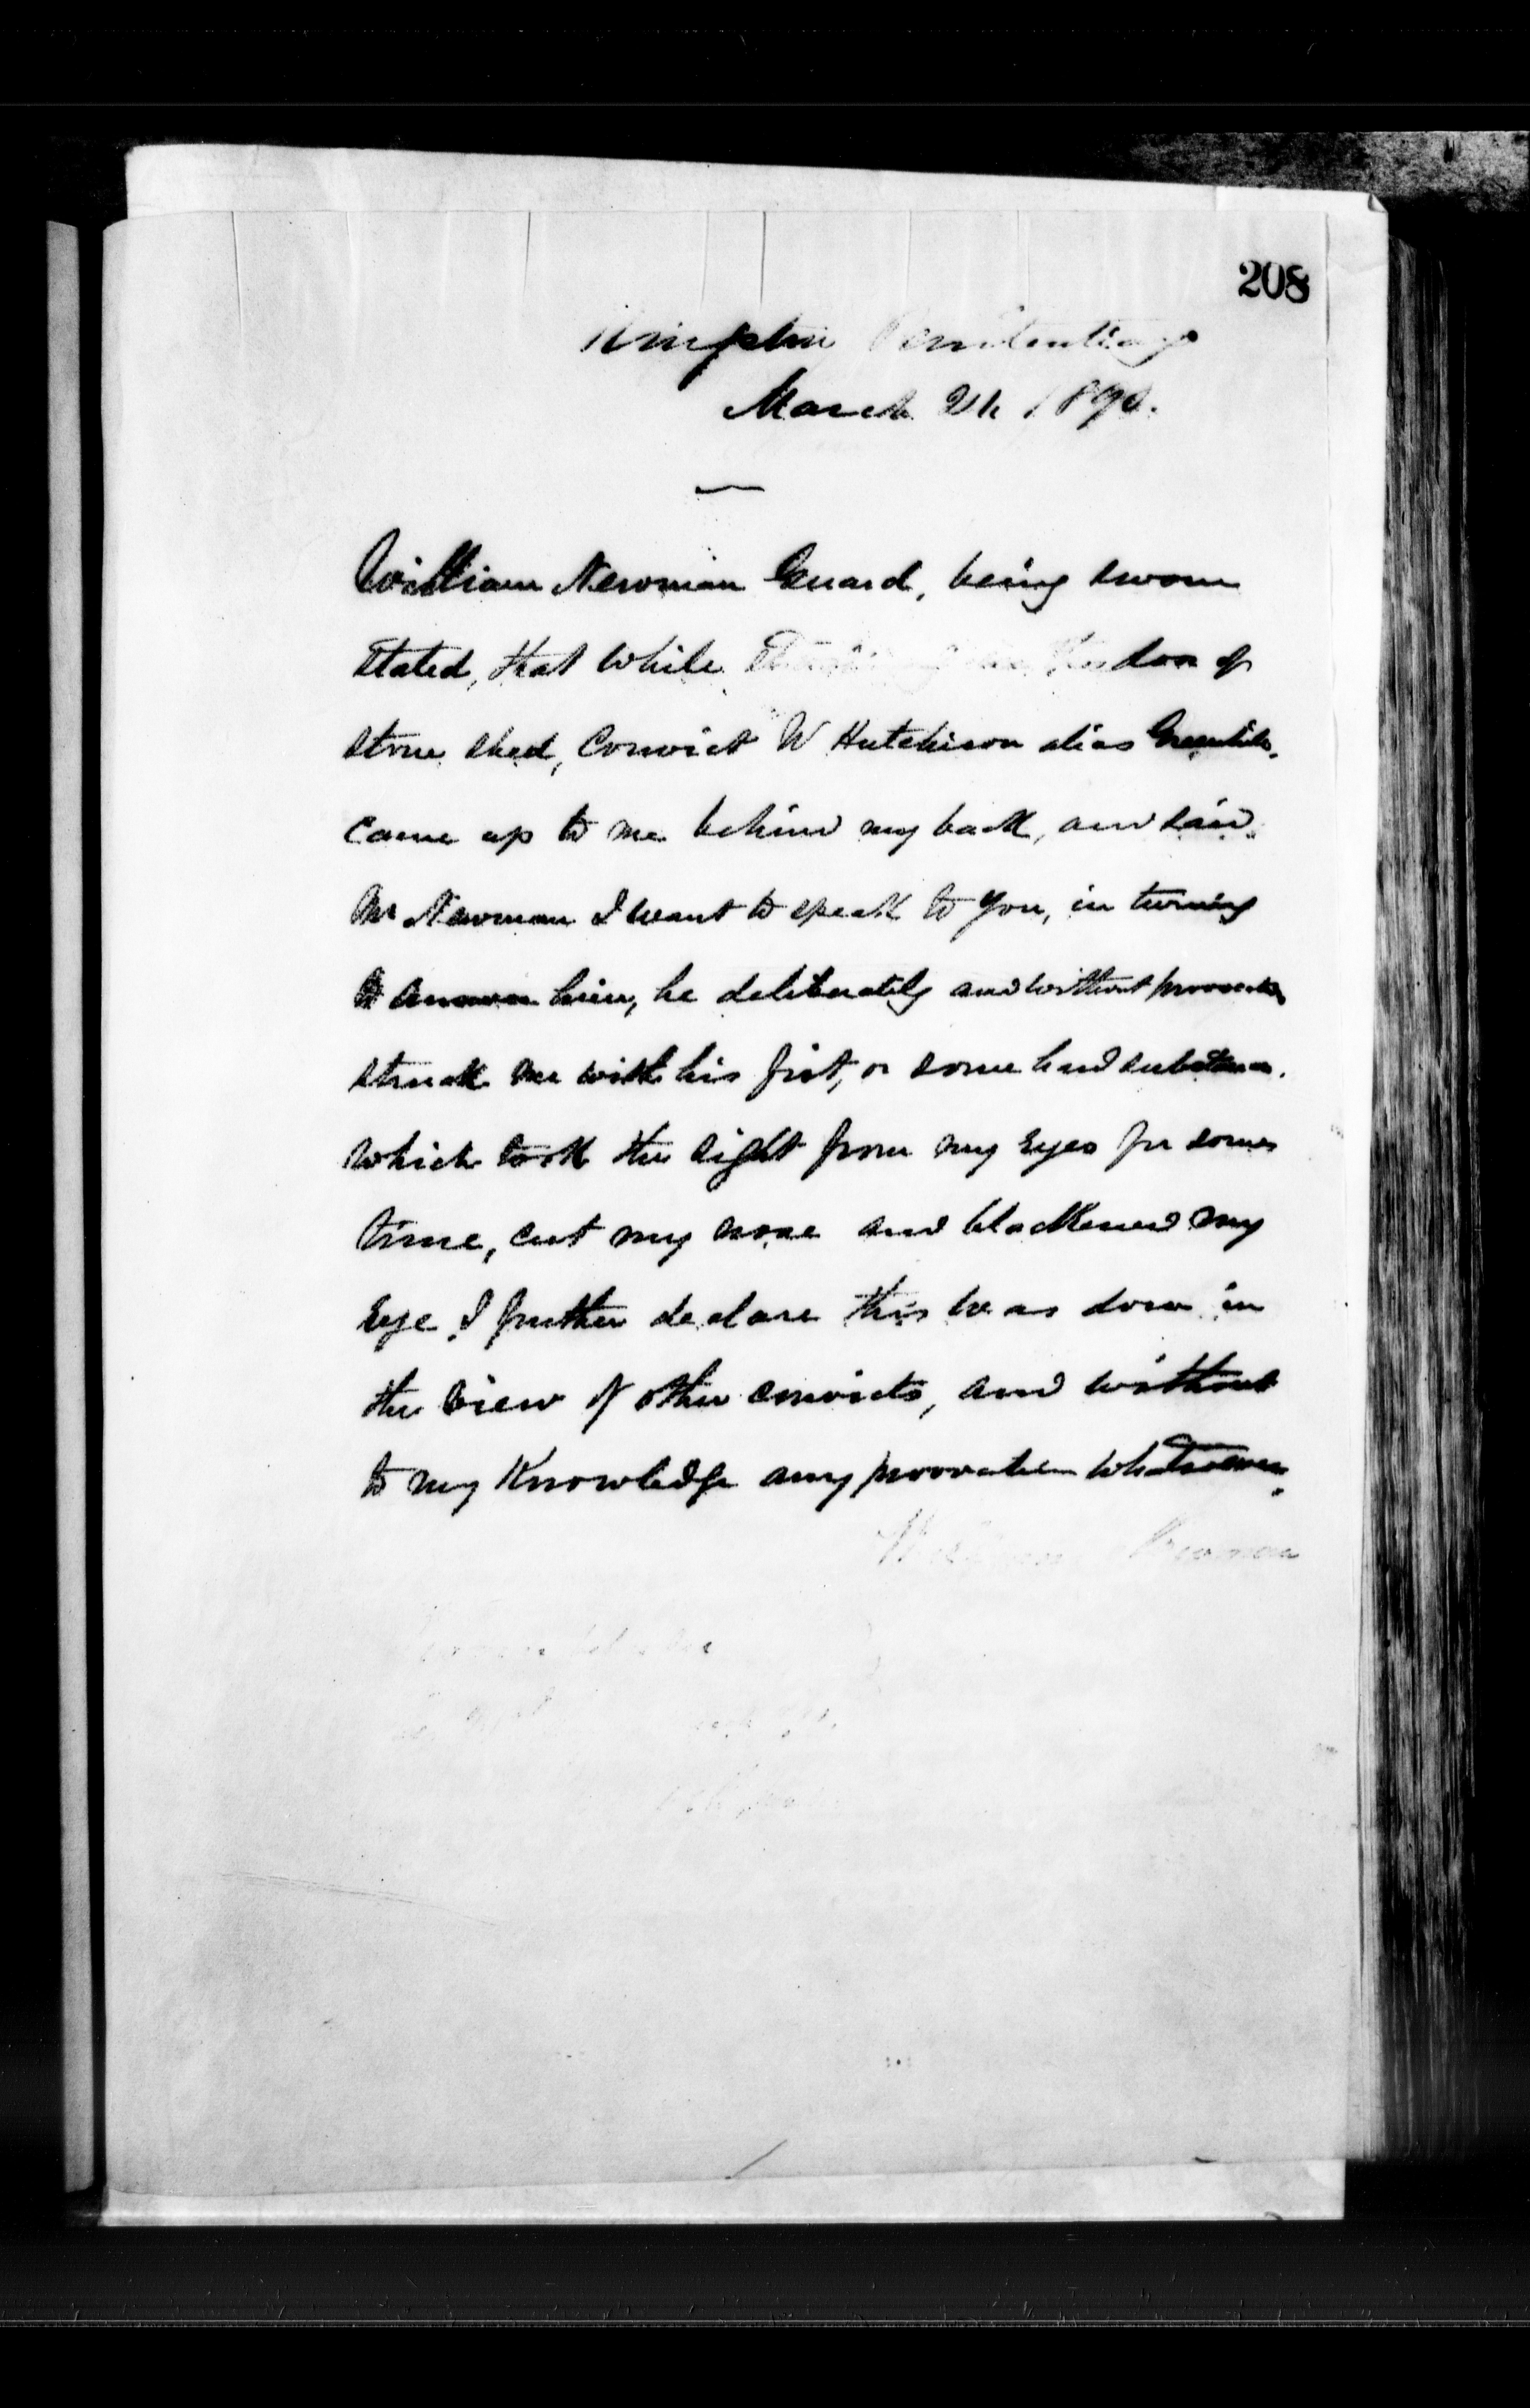 208
Kingston Penitentiary
March 1890.
William Newman Guard, being sworn
Stated, that while door of
stone shed, Convict W Hutchison alias
came up to me behind my back, and said
Mr Newman I want to speak to you, in turning
to answer him, he deliberately and without provocation
struck me with his fist, or some hard substance.
which took the sight from my Eyes for some
time, cut my nose and blackened my
Eye. I further declare this was done in
the view of other convicts, and without
to my Knowledge any provocation whatsoever.
William Newman